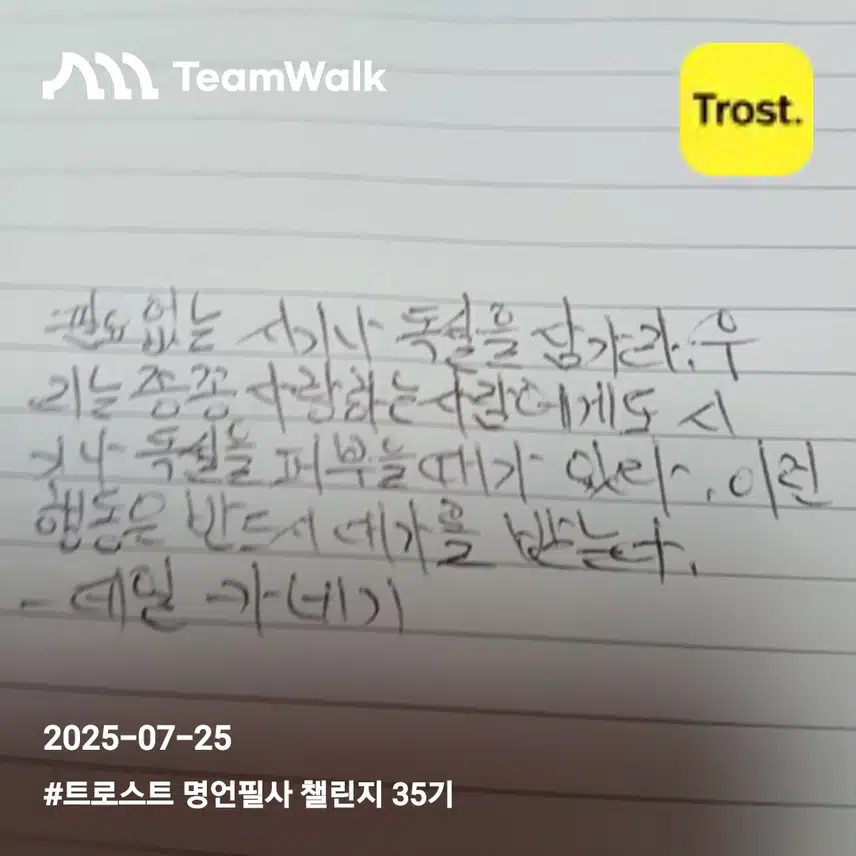 TeamWalk
Trost.
필요없는 시기나 독설을 삼가라. 우
리는 종종 사랑하는 사람에게도 시
기나 독설을 퍼부을 때가 있다. 이런
행동은 반드시 대가를 받는다.
- 데일 카네기
2025-07-25
#트로스트 명언필사 챌린지 35기